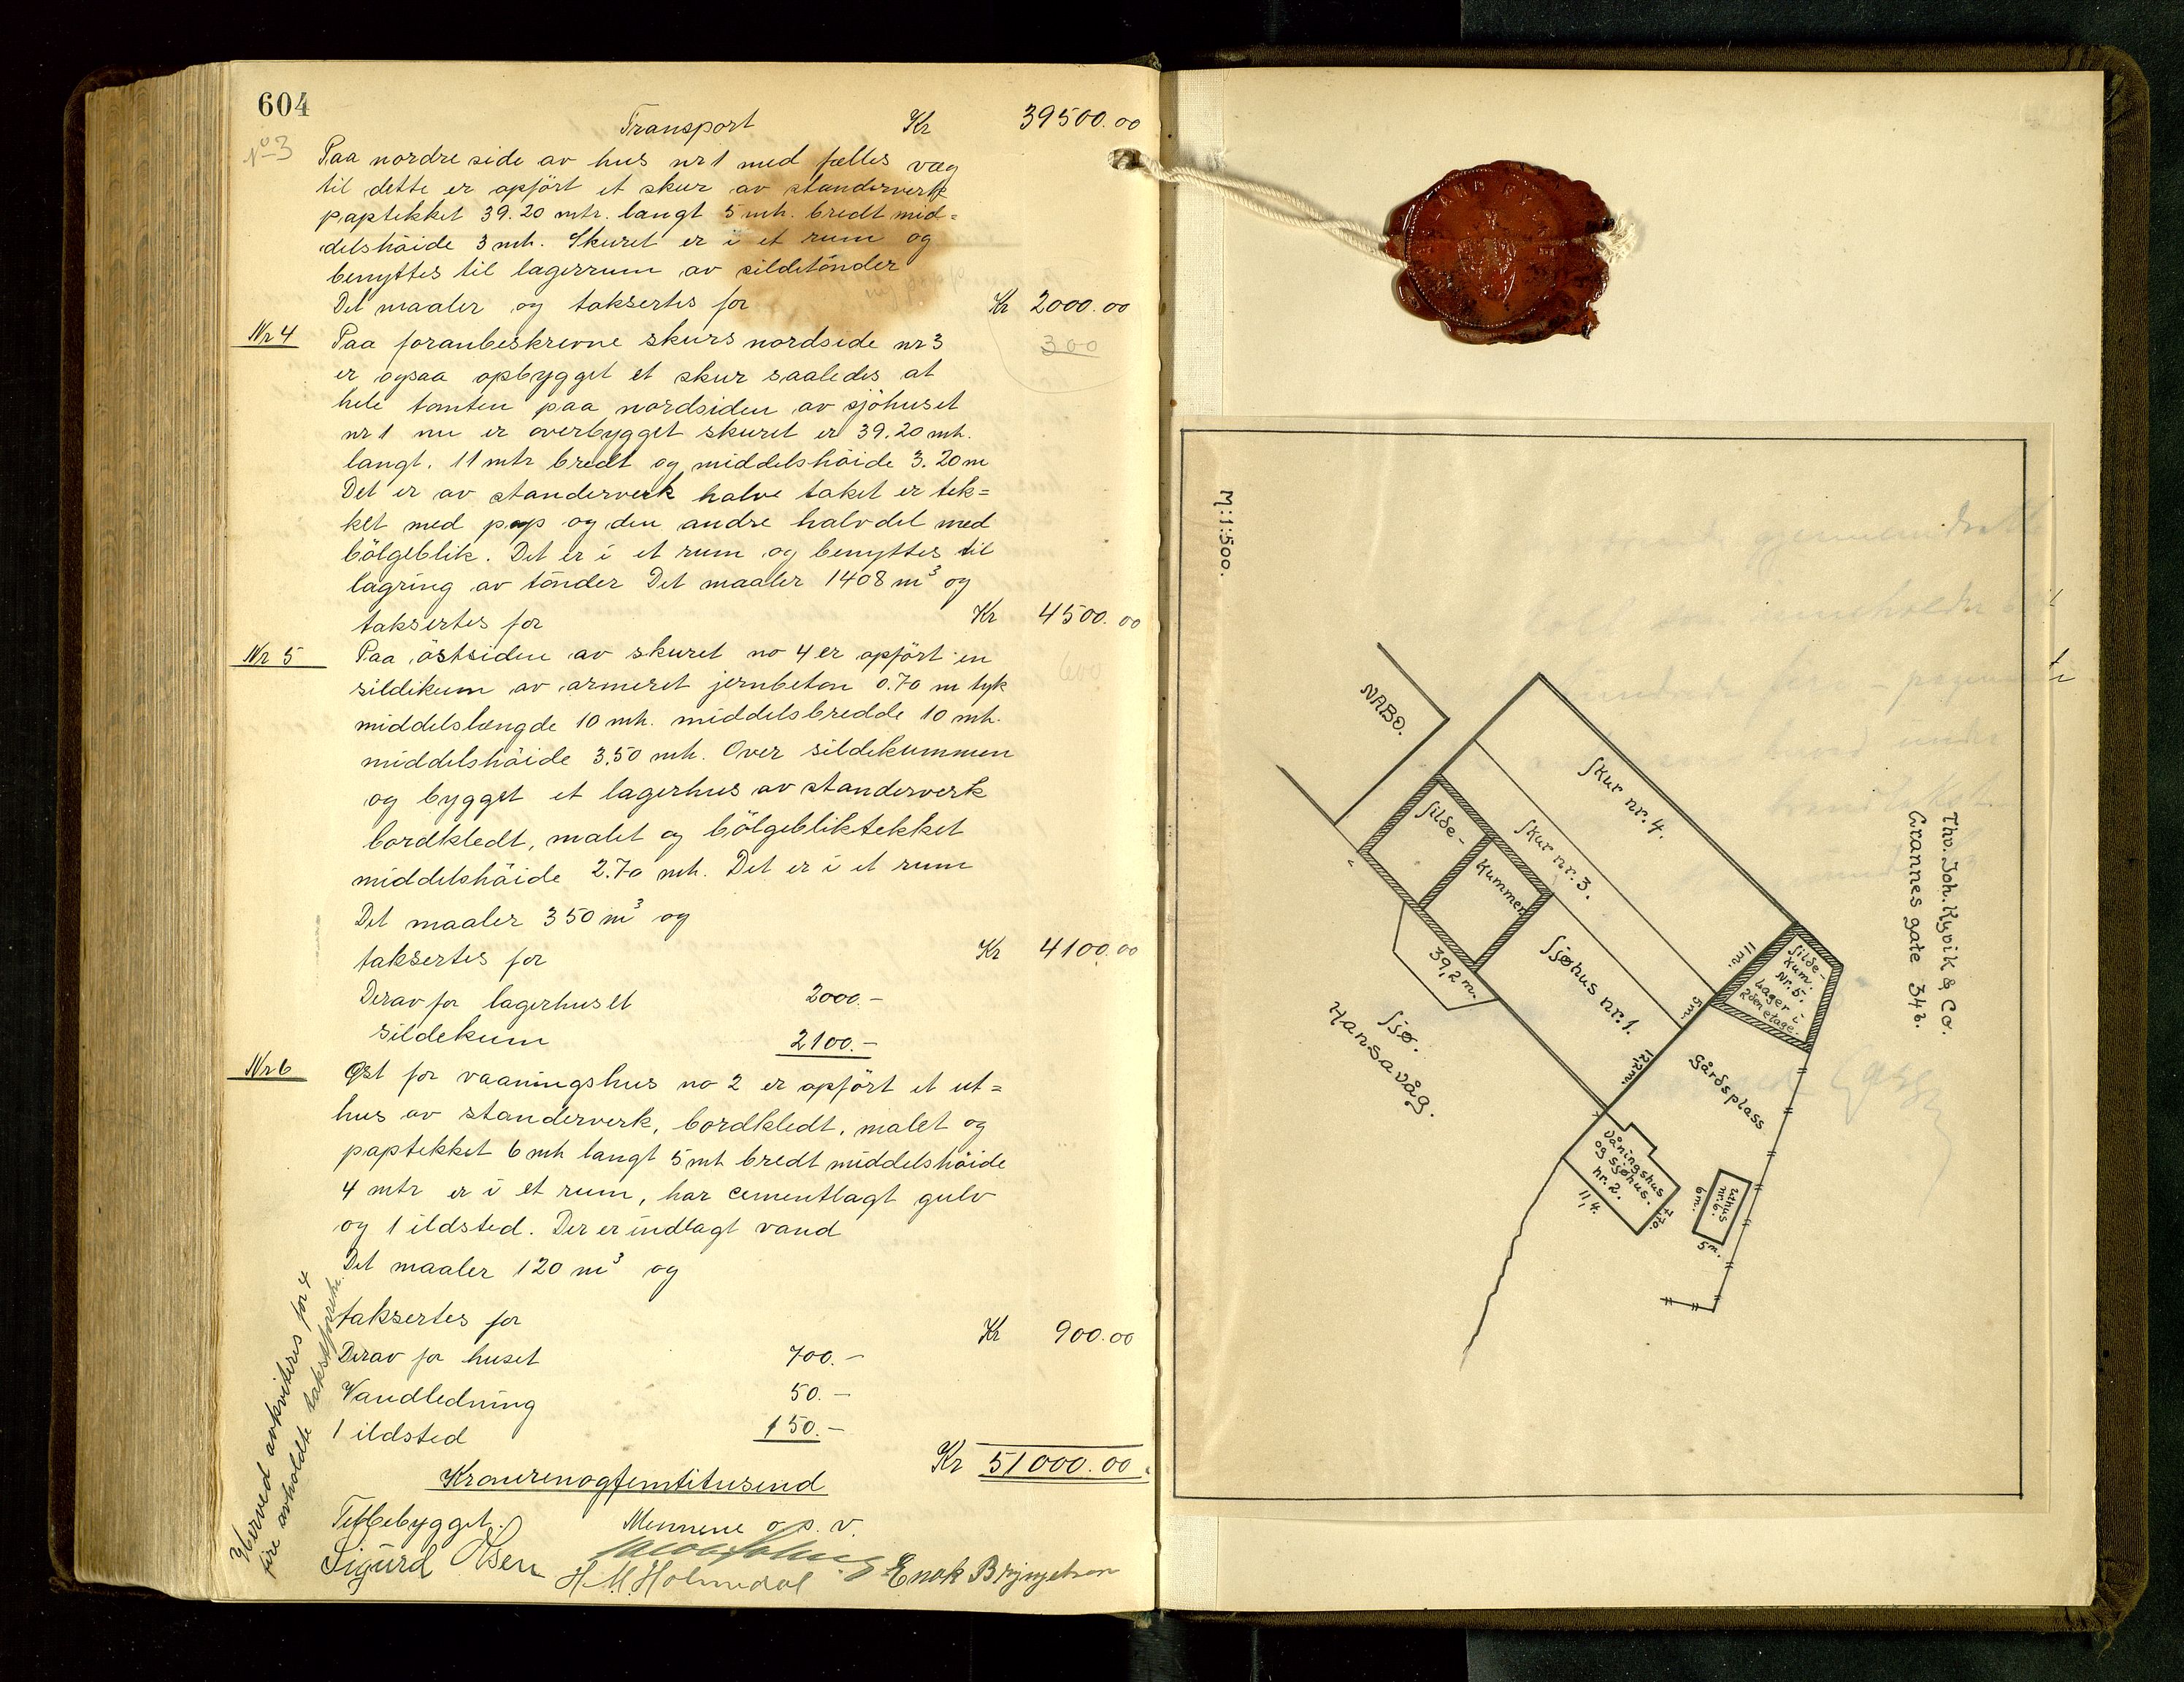 604
Transport Kr 39500.00
No 3
Paa nordre side av hus nr 1 med fælles væg
til dette er opfört et skur av standerverk
paptekket 39.20 mtr. langt 5 mtr. bredt mid=
delshöide 3 mtr. Skuret er i et rum og
benyttes til lagerrum av sildetönder
Det maaler og taksertes for Kr 2000.00
300
Nr 4 Paa foranbeskrevne skurs nordside nr 3
er ogsaa opbygget et skur saaledes at
hele tomten paa nordsiden av sjöhuset
nr 1 nu er overbygget skuret er 39.20 mtr.
langt. 11 mtr bredt og middelshöide 3.20 m
Det er av standerverk halve taket er tek=
ket med pap og den andre halvdel med
bölgeblik. Det er i et rum og benyttes til
lagring av tönder Det maaler 1408 m³ og
taksertes for Kr 4500.00
600
Nr 5 Paa östsiden av skuret no 4 er opfört en
sildikum av armeret jernbeton 0.70 m tyk
middelslængde 10 mtr. middelsbredde 10 mtr.
middelshöide 3.50 mtr. Over sildekummen
og bygget et lagerhus av standerverk
bordkledt, malet og bölgebliktekket
middelshöide 2.70 mtr. Det er i et rum
Det maaler 350 m³ og
taksertes for Kr 4100.00
Derav for lagerhuset 2000.-
sildekum 2100.-
Nr 6 Øst for vaaningshus no 2 er opfört et ut=
hus av standerverk, bordkledt, malet og
paptekket 6 mtr langt 5 mtr bredt middelshöide
4 mtr er i et rum, har cementlagt gulv
og 1 ildsted. Der er indlagt vand
Det maaler 120 m³ og
taksertes for Kr 900.00
Derav for huset 700.-
Vandledning 50.-
1 ildsted 150.-
Kr 51000.00
Kronerenogfemtitusend
Tetbebygget. Mennene o.s.v.
Sigurd Olsen
H. M. Holmedal
Enok Bryngelson
Herved avkviteres for 4
fire avholdte takstforretn.
M:1:500.
Thv. Joh. Kyvik & Co.
Grannes gate 34b.
NABO.
Skur nr. 4.
Skur nr. 3.
Silde-
Kummer
Sjøhus nr. 1.
39,2 m.
11 m.
5 m.
12 m.
Silde-
Kum.
Nr. 5.
Lager i
2den etage.
Sjø.
Hansavåg.
Gårdsplass
Våningshus
og sjøhus.
nr. 2.
11,4.
7.70.
uthus
nr. 6.
6 m.
5 m.